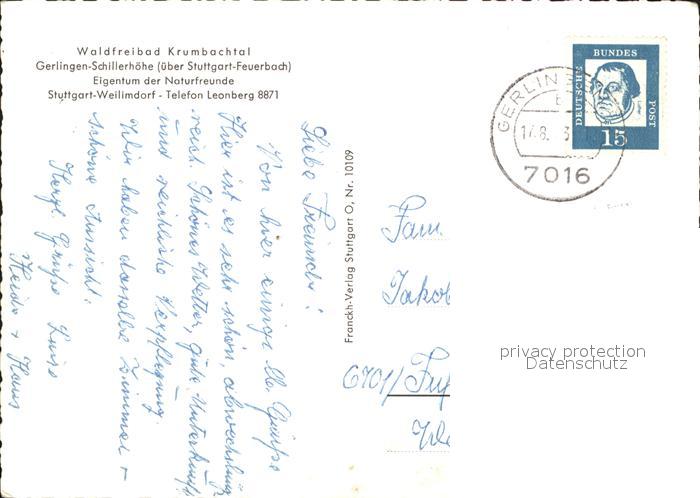 Waldfreibad Krumbachtal
Gerlingen-Schillerhöhe (über Stuttgart-Feuerbach)
Eigentum der Naturfreunde
Stuttgart-Weilimdorf - Telefon Leonberg 8871
Liebe Freunde!
Von hier einige lb. Grüße
Hier ist es sehr schön, abwechslungs
reich. Schönes Wetter, gute Unterkunft
und reichliche Verpflegung.
Wir haben dasselbe Zimmer +
schöne Aussicht.
Herzl. Grüße Luise
Heide + Hans
Franckh-Verlag Stuttgart O, Nr. 10109
DEUTSCHE
BUNDES
POST
15
GERLINGEN
b
17.8.
7016
Fam.
Jakob
6701/
privacy protection
Datenschutz